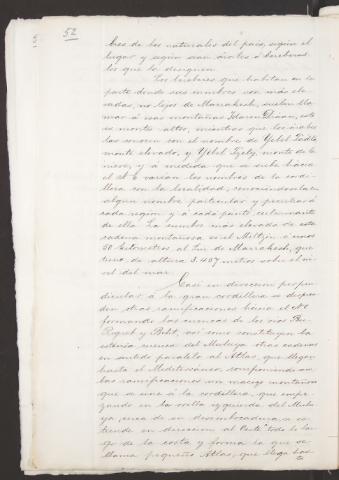 52
bres de los naturales del pais, según el
lugar y según sean árabes ó bereberes
los que la designen.
Los bereberes que habitan en la
parte donde sus cumbres son más ele-
vadas, no lejos de Marrakesh, suelen lla-
mar á esas montañas Idaren Drann, esto
es montes altos, mientras que los árabes
las conocen con el nombre de Yebel
monte elevado, y Yebel Tzelj, monte de la
nieve, y á medida que se sube hácia
el N E varían los nombres de la cordi-
llera con la localidad, conociéndola con
algún nombre particular y peculiar á
cada región y á cada punto culminante
de ella. La cumbre más elevada de esta
cadena montañosa es el Miltsin á unos
50 kilómetros al Sur de Marrakesh, que
tiene de altura 3.457 metros sobre el ni-
vel del mar.
Casi en dirección perpen-
dicular á la gran cordillera se despren-
den otras ramificaciones hácia el NO
formando las cuencas de los rios Bu-
Regreg y Beht, así como constituyen la
extensa cuenca del Muluya otras cadenas
en sentido paralelo al Atlas, que llegan
hasta el Mediterráneo, componiendo am-
bas ramificaciones un macizo montañoso
que se une á la cordillera, que empe-
zando en la orilla izquierda del Mulu-
ya, cerca de su desembocadura se es-
tiende en direccion al Oeste todo lo lar-
go de la costa y forma la que se
llama pequeño Atlas, que llega has-
ta